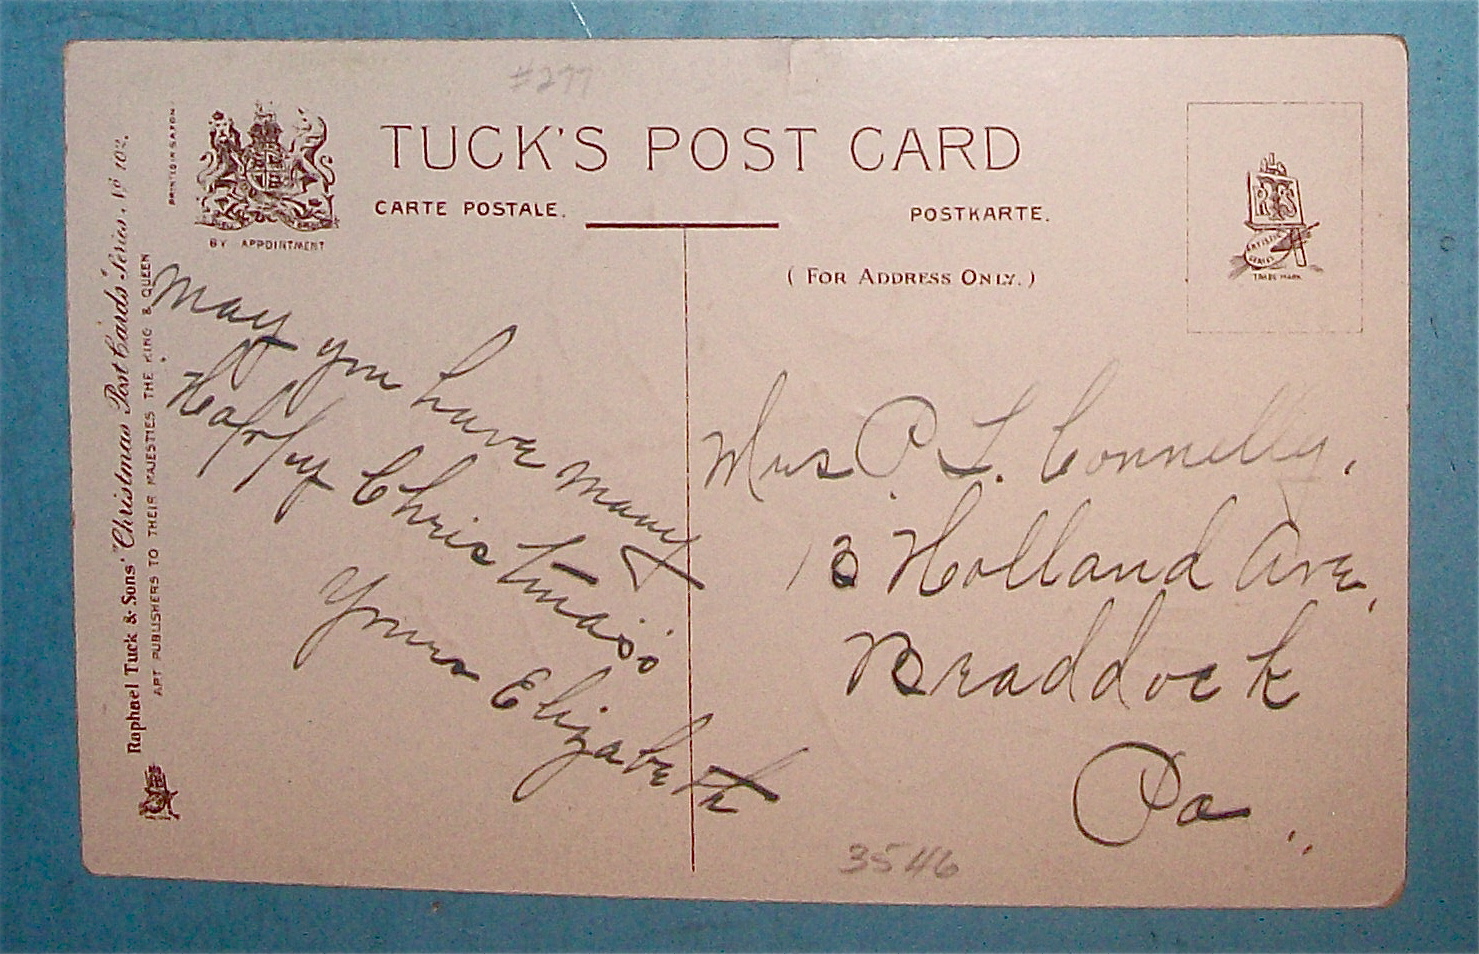 #277
TUCK'S POST CARD
CARTE POSTALE.
POSTKARTE.
(FOR ADDRESS ONLY.)
BY APPOINTMENT
PRINTED IN SAXONY
Raphael Tuck & Sons' "Christmas Post Cards" Series, No 102.
ART PUBLISHERS TO THEIR MAJESTIES THE KING & QUEEN
TRADE MARK
May you have many
Happy Christmas's
Yours Elizabeth
Mrs P L. Connelly.
Holland Ave,
Braddock
Pa.
3546